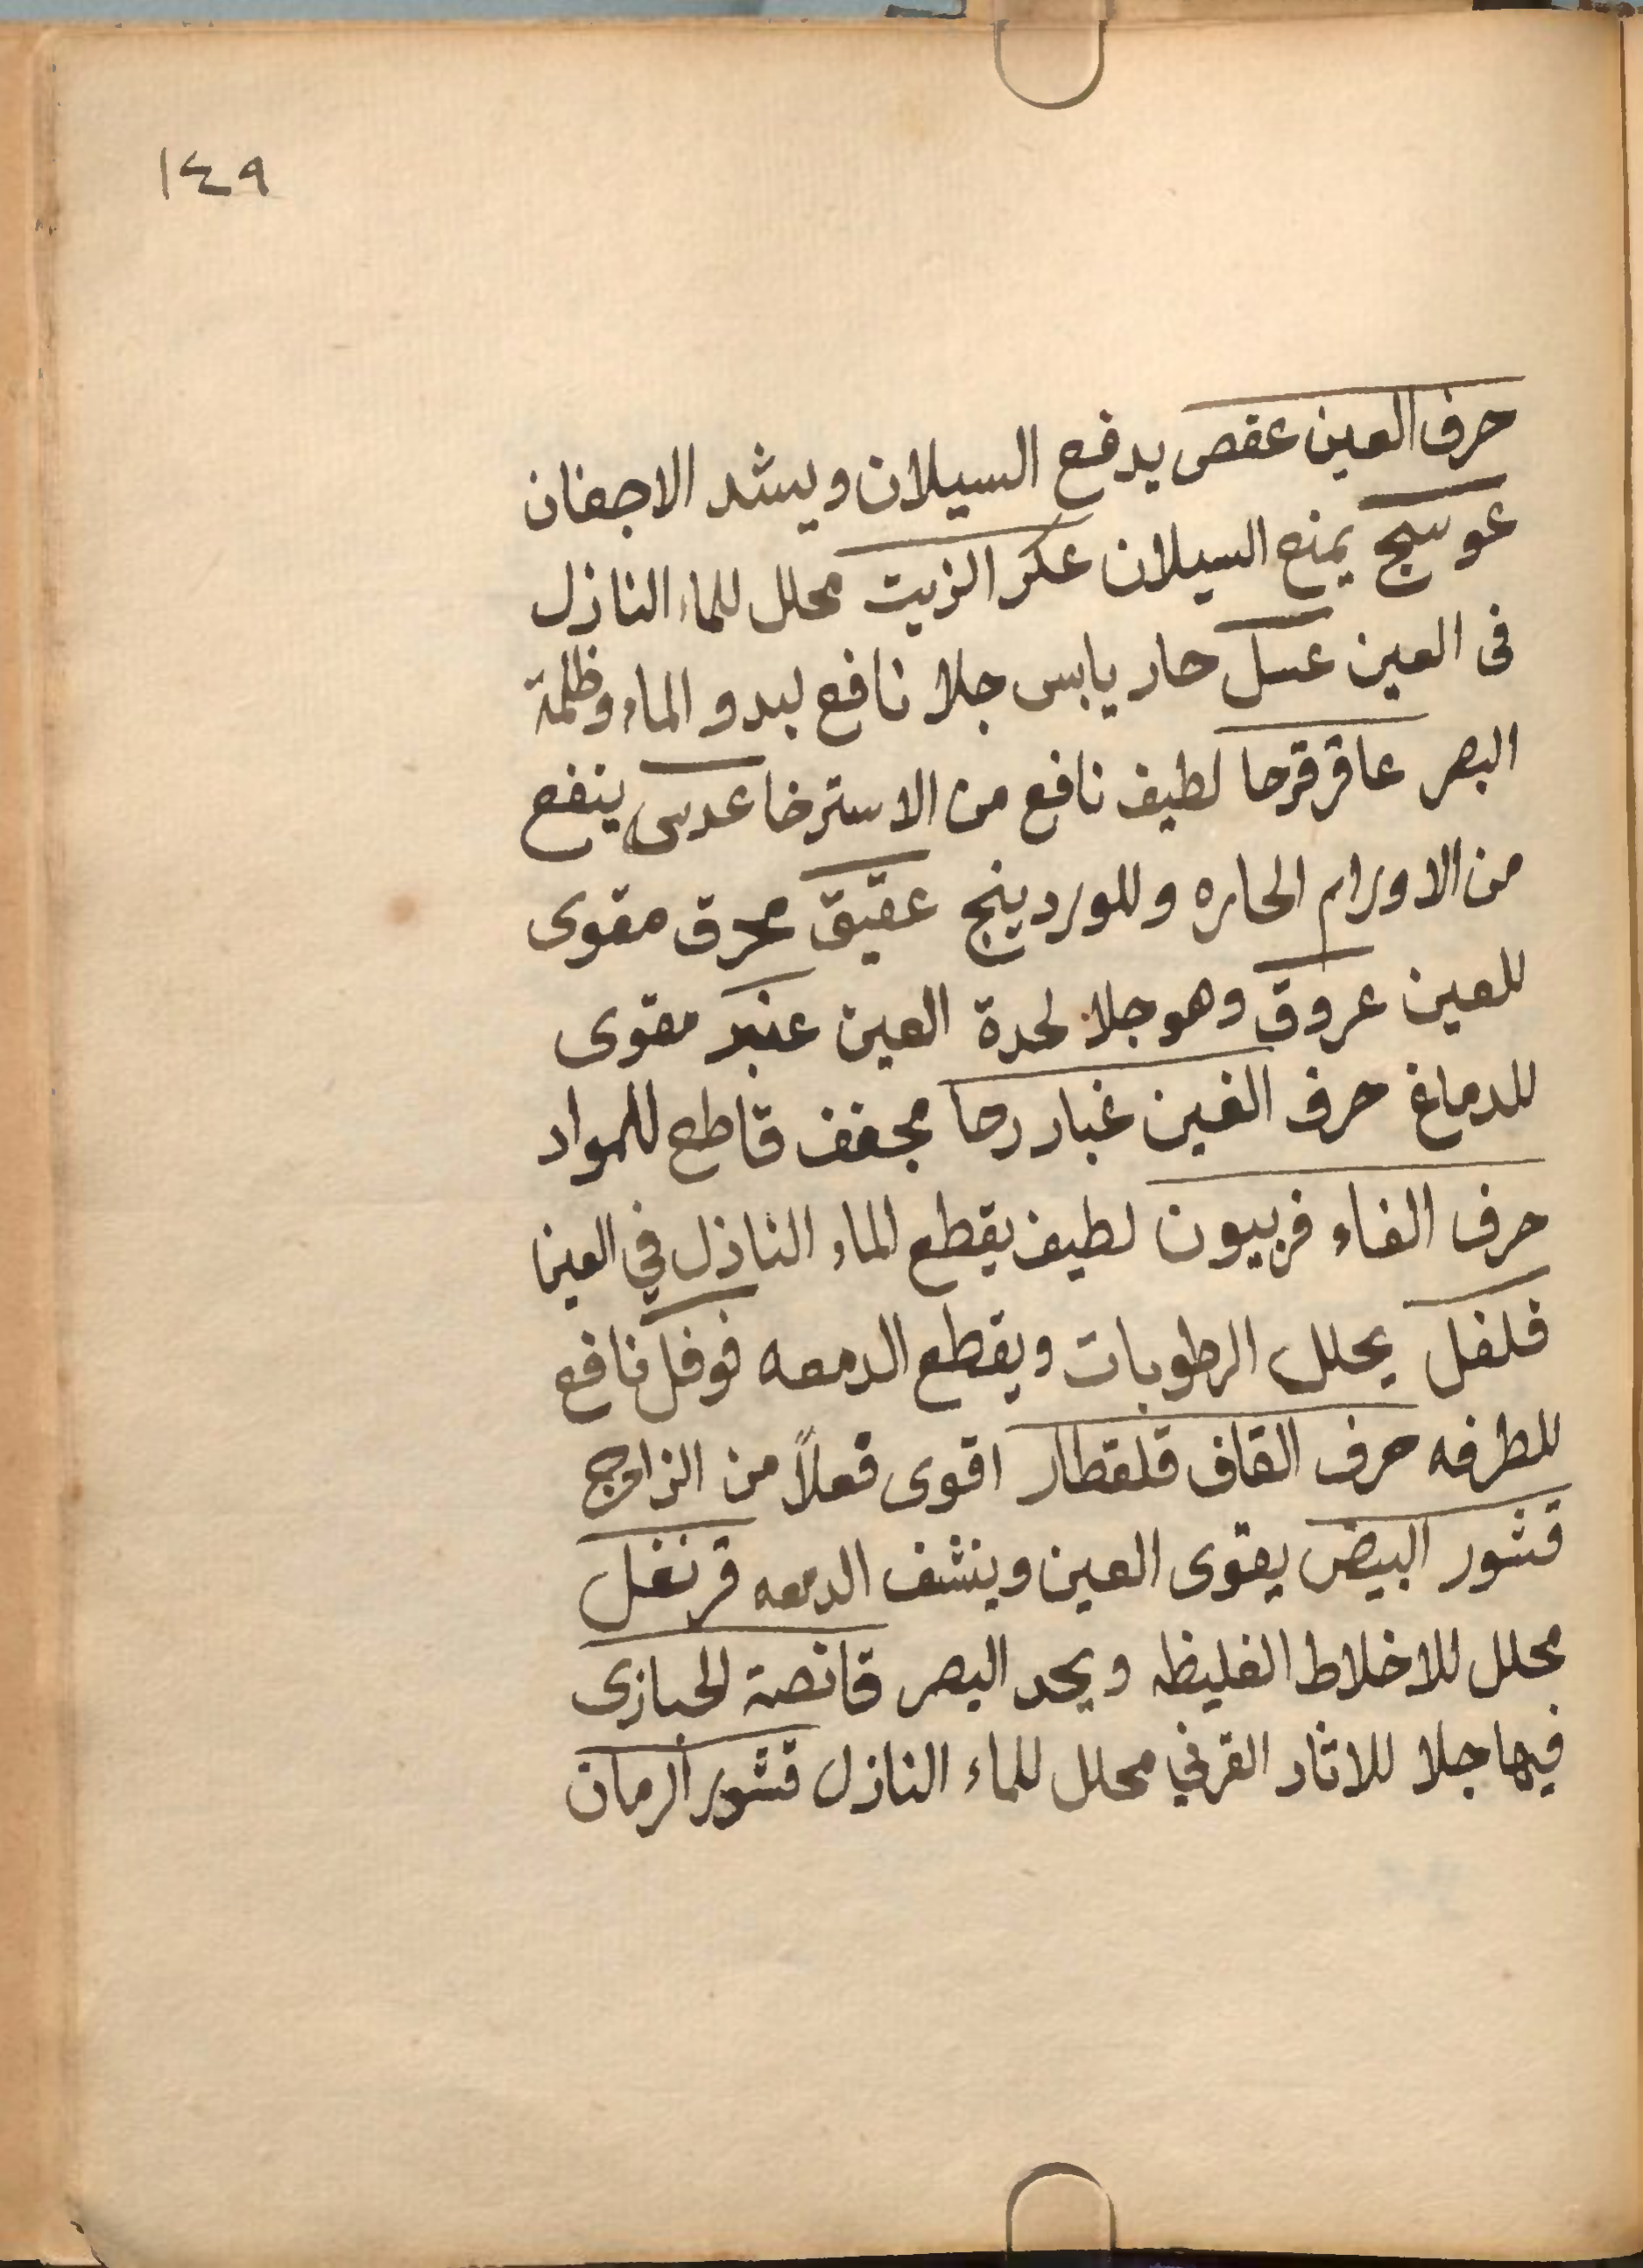 ١٤٩
حرف العين عفص يدفع السيلان ويشد الاجفان
عوسج يمنع السيلان عكر الزيت محلل للماء النازل
فى العين عسل حار يابس جلا نافع لبدو الماء وظلمة
البصر عاقرقرحا لطيف نافع من الاسترخا عدس ينفع
من الاورام الحاره وللوردينج عقيق محرق مقوى
للعين عروق وهو جلا لحدة العين عنبر مقوى
للدماغ حرف الغين غبار رحا مجفف قاطع للمواد
حرف الفاء فربيون لطيف يقطع الماء النازل في العين
فلفل يحلل الرطوبات ويقطع الدمعه فوفل نافع
للطرفه حرف القاف قلقطار اقوى فعلاً من الزاج
قشور البيض يقوى العين وينشف الدمعه قرنفل
محلل للاخلاط الغليظه ويحد البصر قانصة الحبارى
فيها جلا للاثار القرني محلل للماء النازل قشور الرمان